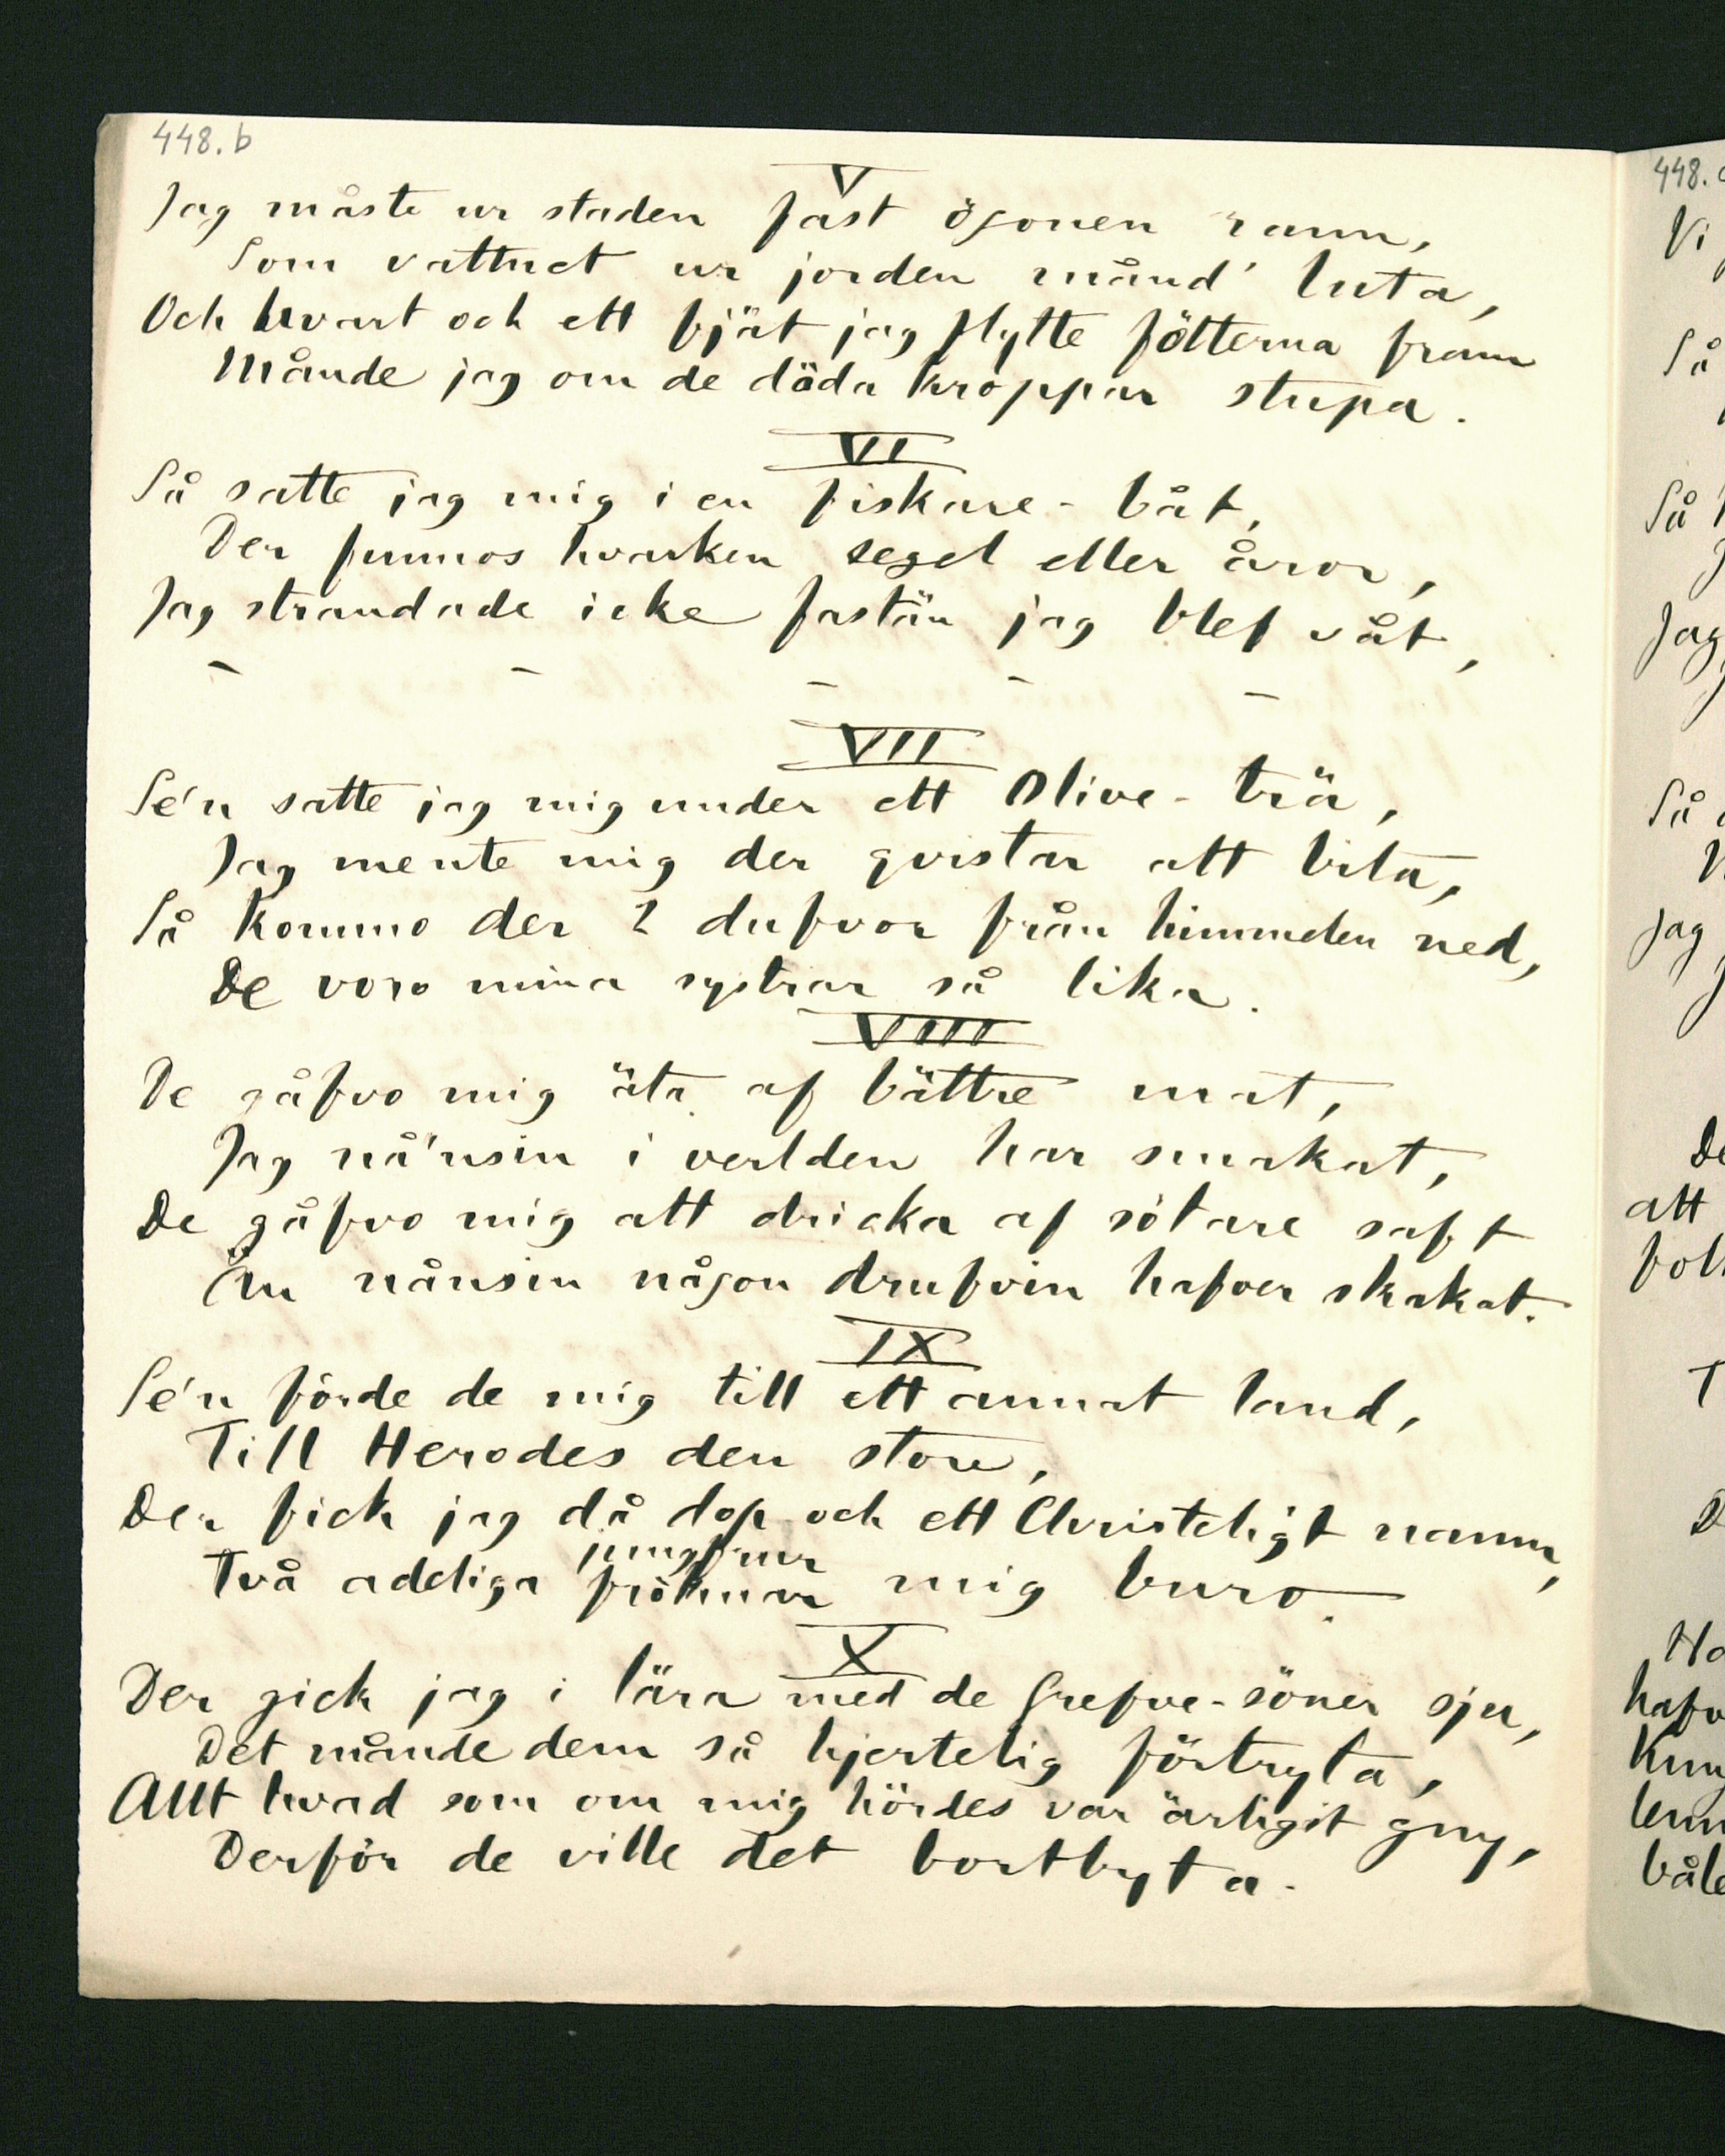 448.b
V
Jag måste ur staden fast ögonen rann,
Som vattnet ur jorden månd' luta,
Och hvart och ett fjät jag flytte fötterna fram
Månde jag om de döda kroppar stupa.
VI
Så satte jag mig i en fiskare-båt,
Der funnos hvarken segel eller åror,
Jag strandade icke fastän jag blef våt,
– – – – –
VII
Se'n satte jag mig under ett Olive-trä,
Jag mente mig der qvistar att bita,
Så kommo der 2 dufvor från himmelen ned,
De voro mina systrar så lika.
VIII
De gåfvo mig äta af bättre mat,
Jag nå'nsin i verlden har smakat,
De gåfvo mig att dricka af sötare saft
Än nånsin någon drufvin hafver skakat.
IX
Se'n förde de mig till ett annat land,
Till Herodes den store,
Der fick jag då dop och ett Christeligt namn,
jungfrur
Två adeliga fröknar mig buro.
X
Der gick jag i lära med de Grefve-söner sju,
Det månde dem så hjertelig förtryta,
Allt hvad som om mig hördes var ärligit gny,
Derför de ville det bortbyta.
448.
Vi
Så
Så
Jag
Så
Jag
De
att
T
D
hafv